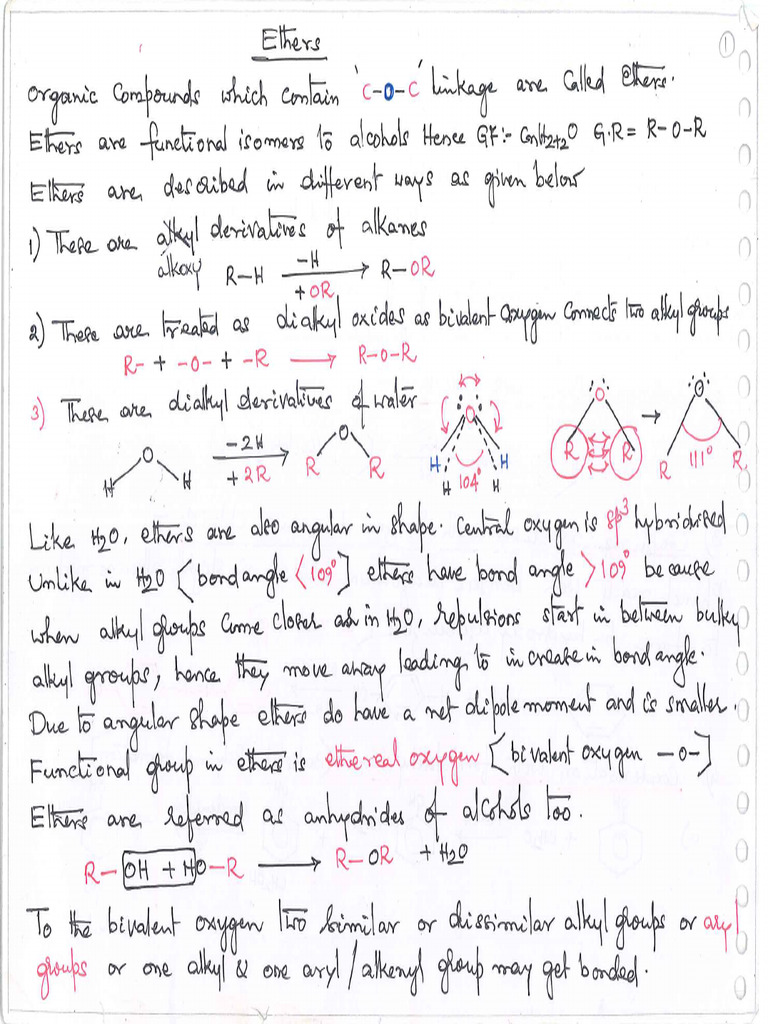 Ethers
1
Organic Compounds which contain 'C-O-C' linkage are called Ethers.
Ethers are functional isomers to alcohols Hence GF:- CnH2n+2O G.R = R-O-R
Ethers are described in different ways as given below
1) These are alkyl derivatives of alkanes
alkoxy R-H -H + OR R-OR
2) These are treated as dialkyl oxides as bivalent oxygen connects two alkyl groups
R- + -O- + -R → R-O-R
3) These are dialkyl derivatives of water
H O H -2H +2R R O R O H H H H 104° O R R → O R R 111°
Like H2O, ethers are also angular in shape. Central oxygen is sp3 hybridised
Unlike in H2O [bond angle <109°] ethers have bond angle >109° because
when alkyl groups come closer as in H2O, repulsions start in between bulky
alkyl groups, hence they move away leading to increase in bond angle.
Due to angular shape ethers do have a net dipole moment and is smaller.
Functional group in ethers is ethereal oxygen [bivalent oxygen -O-]
Ethers are referred as anhydrides of alcohols too.
R-OH + HO-R → R-OR + H2O
To the bivalent oxygen two similar or dissimilar alkyl groups or aryl
groups or one alkyl & one aryl/alkenyl group may get bonded.